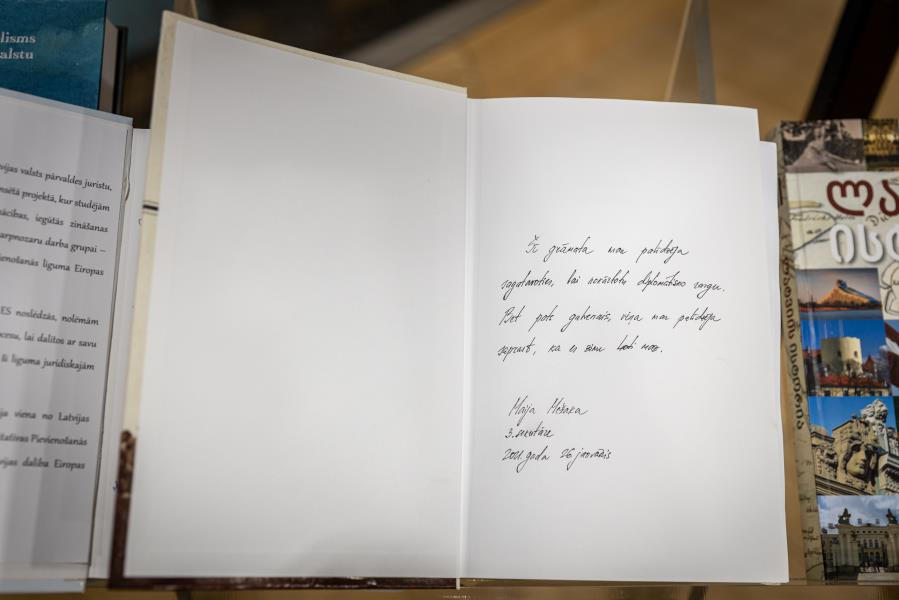 lisms
alstu
vijas valsts pārvaldes juristu,
nsētā projektā, kur studējām
nācības, iegūtās zināšanas
arpnozaru darba grupai –
ienošanās līguma Eiropas
ES noslēdzās, nolēmām
ocesu, lai dalītos ar savu
šī līguma juridiskajām
ja viena no Latvijas
tatīvas Pievienošanās
vijas dalība Eiropas
Šī grāmata man palīdzēja
sagatavoties, lai nokārtotu diplomātisko rangu.
Bet pats galvenais, viņa man palīdzēja
saprast, ka es zinu ļoti maz.
Maija
3. sekretāre
2001. gada 26. janvāris
ლა
ისტ